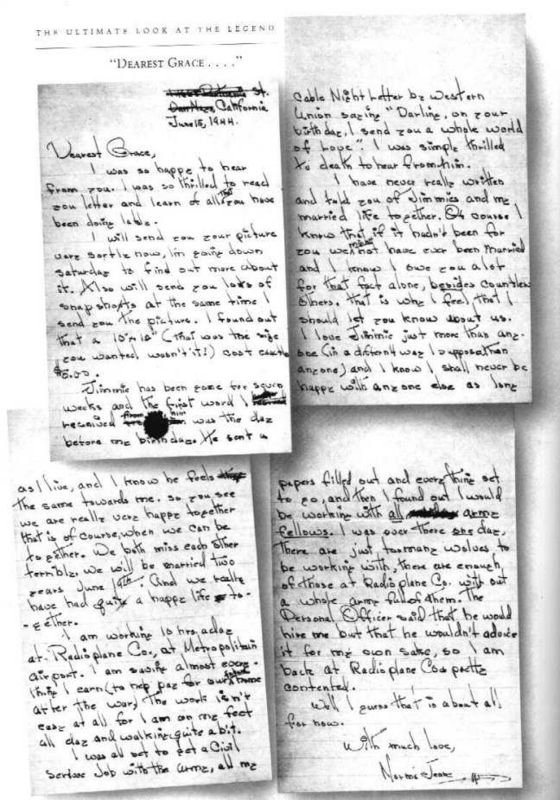 THE ULTIMATE LOOK AT THE LEGEND
"DEAREST GRACE . . . ."
St.
Van Nuys, California
June 15, 1944.
Dearest Grace,
I was so happy to hear
from you. I was so thrilled to read
you letter and learn of all you have
been doing lately.
I will send you your picture
very sortly now, I'm going down
saturday to find out more about
it. Also will send you lots of
snap shosts at the same time I
send you the picture. I found out
that a 10" x 12" (that was the size
you wanted wasn't it!) cost
$5.00.
Jimmie has been gone for seven
weeks and the first word I
received from him was the day
before my birthday. He sent a
cable Night Letter by Western
Union saying "Darling, on your
birthday, I send you a whole world
of love". I was simple thrilled
to death to hear from him.
I have never really written
and told you of Jimmies and my
married life together. Of course I
know that if it hadn't been for
you we might not have ever been married
and I know I owe you alot
for that fact alone, besides countless
others, that is why I feel that I
should let you know about us.
I love Jimmie just more than any-
one (in a differnt way I suppose than
anyone) and I know I shall never be
happy with anyone else as long
as I live, and I know he feels
the same towards me. so you see
we are really very happy together
that is of course, when we can be
together. We both miss each other
terribly. we will be married two
years June 19th. And we really
have had quite a happy life to-
-gether.
I am working 10 hrs. a day
at Radioplane Co., at Metropolitain
airport. I am saving almost every-
thing I earn (to help pay for our home
after the war) the work isn't
easy at all for I am on my feet
all day and walking quite a bit.
I was all set to get a Civil
Serivse Job with the army, all my
papers filled out and everything set
to go, and then I found out I would
be working with all army
fellows. I was over there one day,
There are just too many wolves to
be working with, there are enough
of those at Radioplane Co. with out
a whole army full of them. The
Personal Officer said that he would
hire me but that he wouldn't advice
it for my own sake, so I am
back at Radioplane Co. & pretty
contented.
Well I guess that is about all
for now.
With much love,
Norma Jeane